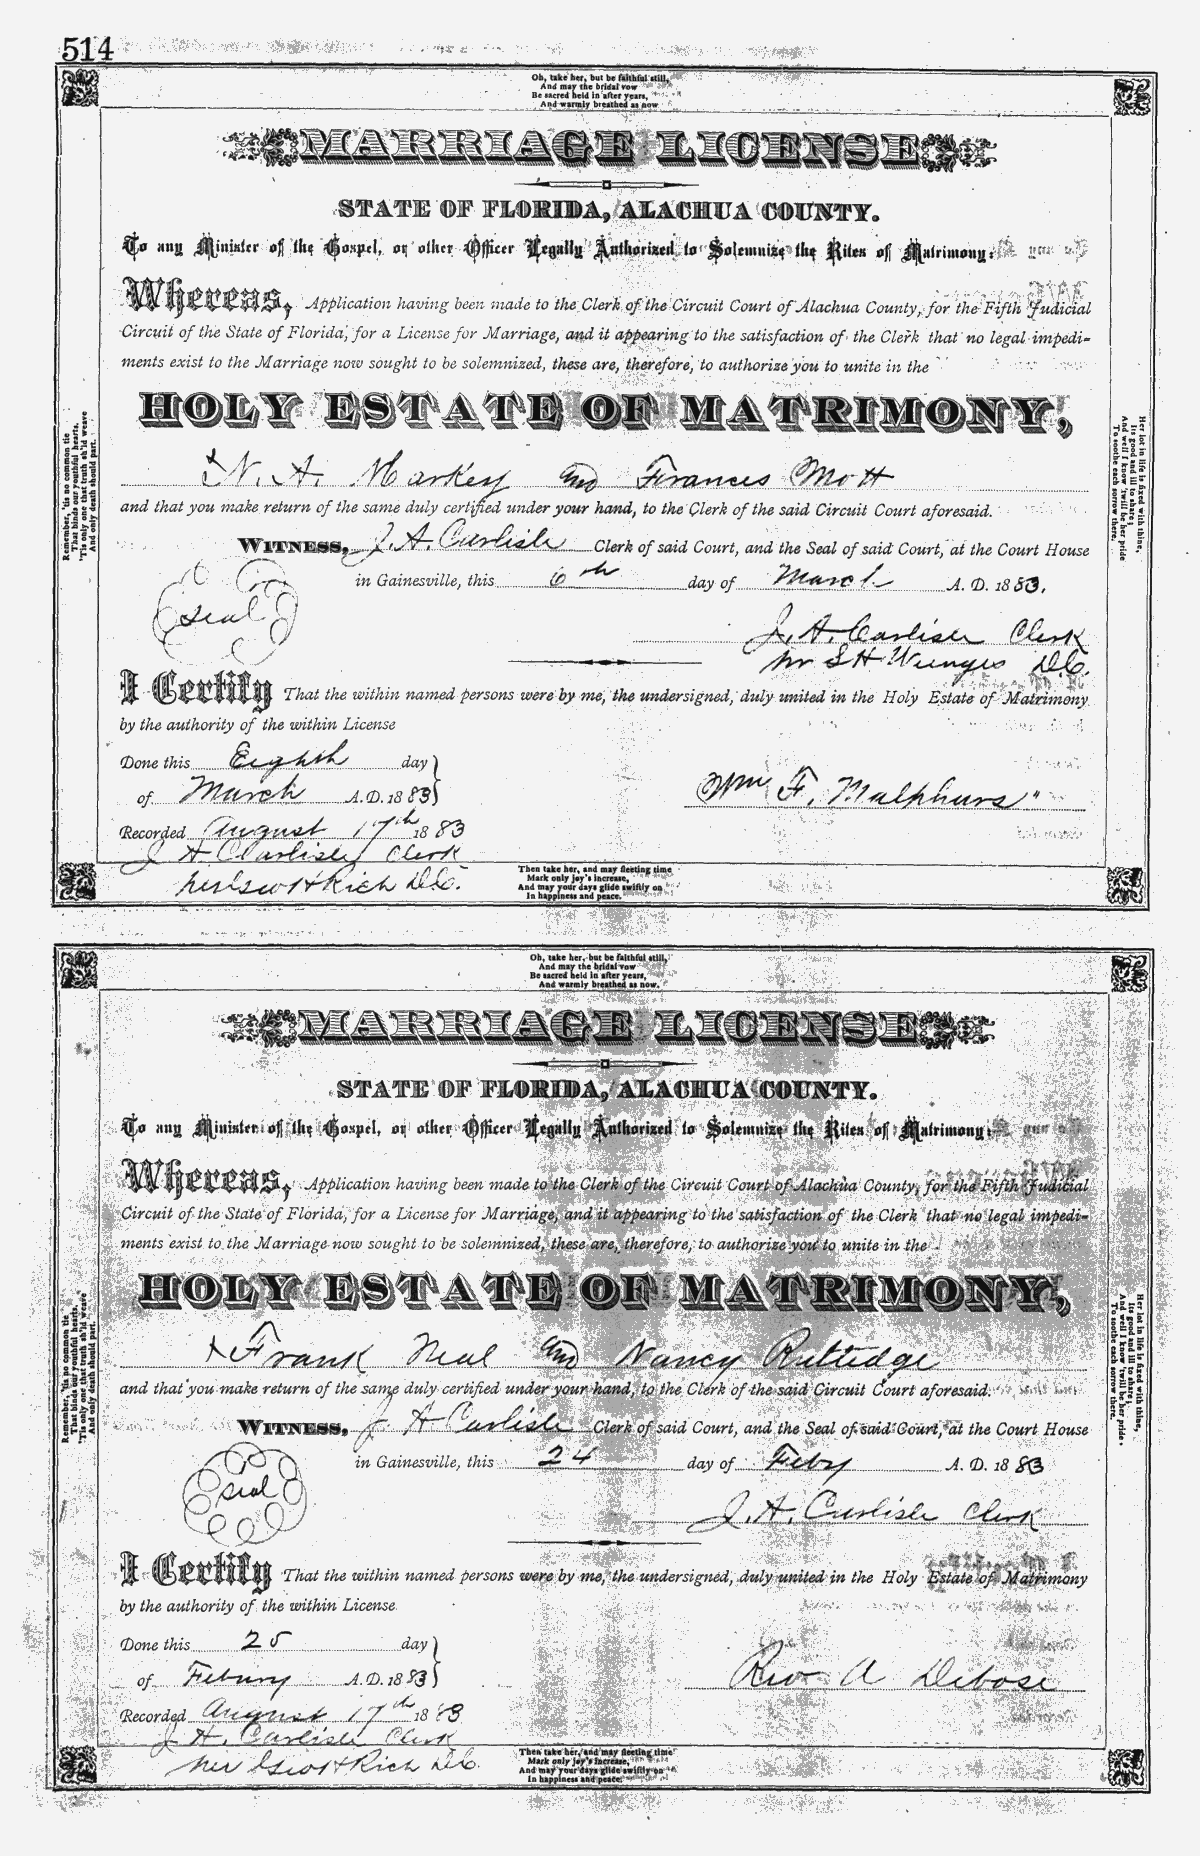 514
Oh, take her, but be faithful still,
And may the bridal vow
Be sacred held in after years,
And warmly breathed as now
MARRIAGE LICENSE
STATE OF FLORIDA, ALACHUA COUNTY.
To any Minister of the Gospel, or other Officer Legally Authorized to Solemnize the Rites of Matrimony:
Whereas, Application having been made to the Clerk of the Circuit Court of Alachua County, for the Fifth Judicial
Circuit of the State of Florida, for a License for Marriage, and it appearing to the satisfaction of the Clerk that no legal impedi-
ments exist to the Marriage now sought to be solemnized, these are, therefore, to authorize you to unite in the
HOLY ESTATE OF MATRIMONY,
N. A. Markey and Frances Mott
and that you make return of the same duly certified under your hand, to the Clerk of the said Circuit Court aforesaid.
WITNESS, J. A. Carlisle Clerk of said Court, and the Seal of said Court, at the Court House
in Gainesville, this 6th day of March A. D. 1883.
Seal
J. A. Carlisle Clerk
S H Wienges D.C.
I Certify That the within named persons were by me, the undersigned, duly united in the Holy Estate of Matrimony
by the authority of the within License
Done this Eighth day
of March A. D. 1883
Wm F. Malphurs
Recorded August 17th 1883
J A Carlisle Clerk
Rich D.C.
Remember, 'tis no common tie
That binds our youthful hearts,
'Tis only one that truth sh'ld weave
And only death should part.
Her lot in life is fixed with thine,
Its good and ill to share;
And well I know 'twill be her pride
To soothe each sorrow there.
Then take her, and may fleeting time
Mark only joy's increase,
And may your days glide swiftly on
In happiness and peace.
Oh, take her, but be faithful still,
And may the bridal vow
Be sacred held in after years,
And warmly breathed as now.
MARRIAGE LICENSE
STATE OF FLORIDA, ALACHUA COUNTY.
To any Minister of the Gospel, or other Officer Legally Authorized to Solemnize the Rites of Matrimony:
Whereas, Application having been made to the Clerk of the Circuit Court of Alachua County, for the Fifth Judicial
Circuit of the State of Florida, for a License for Marriage, and it appearing to the satisfaction of the Clerk that no legal impedi-
ments exist to the Marriage now sought to be solemnized, these are, therefore, to authorize you to unite in the
HOLY ESTATE OF MATRIMONY,
Frank Neal and Nancy Rutledge
and that you make return of the same duly certified under your hand, to the Clerk of the said Circuit Court aforesaid.
WITNESS, J A Carlisle Clerk of said Court, and the Seal of said Court, at the Court House
in Gainesville, this 24 day of Feby A. D. 1883
Seal
J. A. Carlisle Clerk
I Certify That the within named persons were by me, the undersigned, duly united in the Holy Estate of Matrimony
by the authority of the within License
Done this 25 day
of Febury A. D. 1883
Rev A Debose
Recorded August 17th 1883
J. A. Carlisle Clerk
Rich D.C.
Remember, 'tis no common tie
That binds our youthful hearts,
'Tis only one that truth sh'ld weave
And only death should part.
Her lot in life is fixed with thine,
Its good and ill to share;
And well I know 'twill be her pride
To soothe each sorrow there.
Then take her, and may fleeting time
Mark only joy's increase,
And may your days glide swiftly on
In happiness and peace.